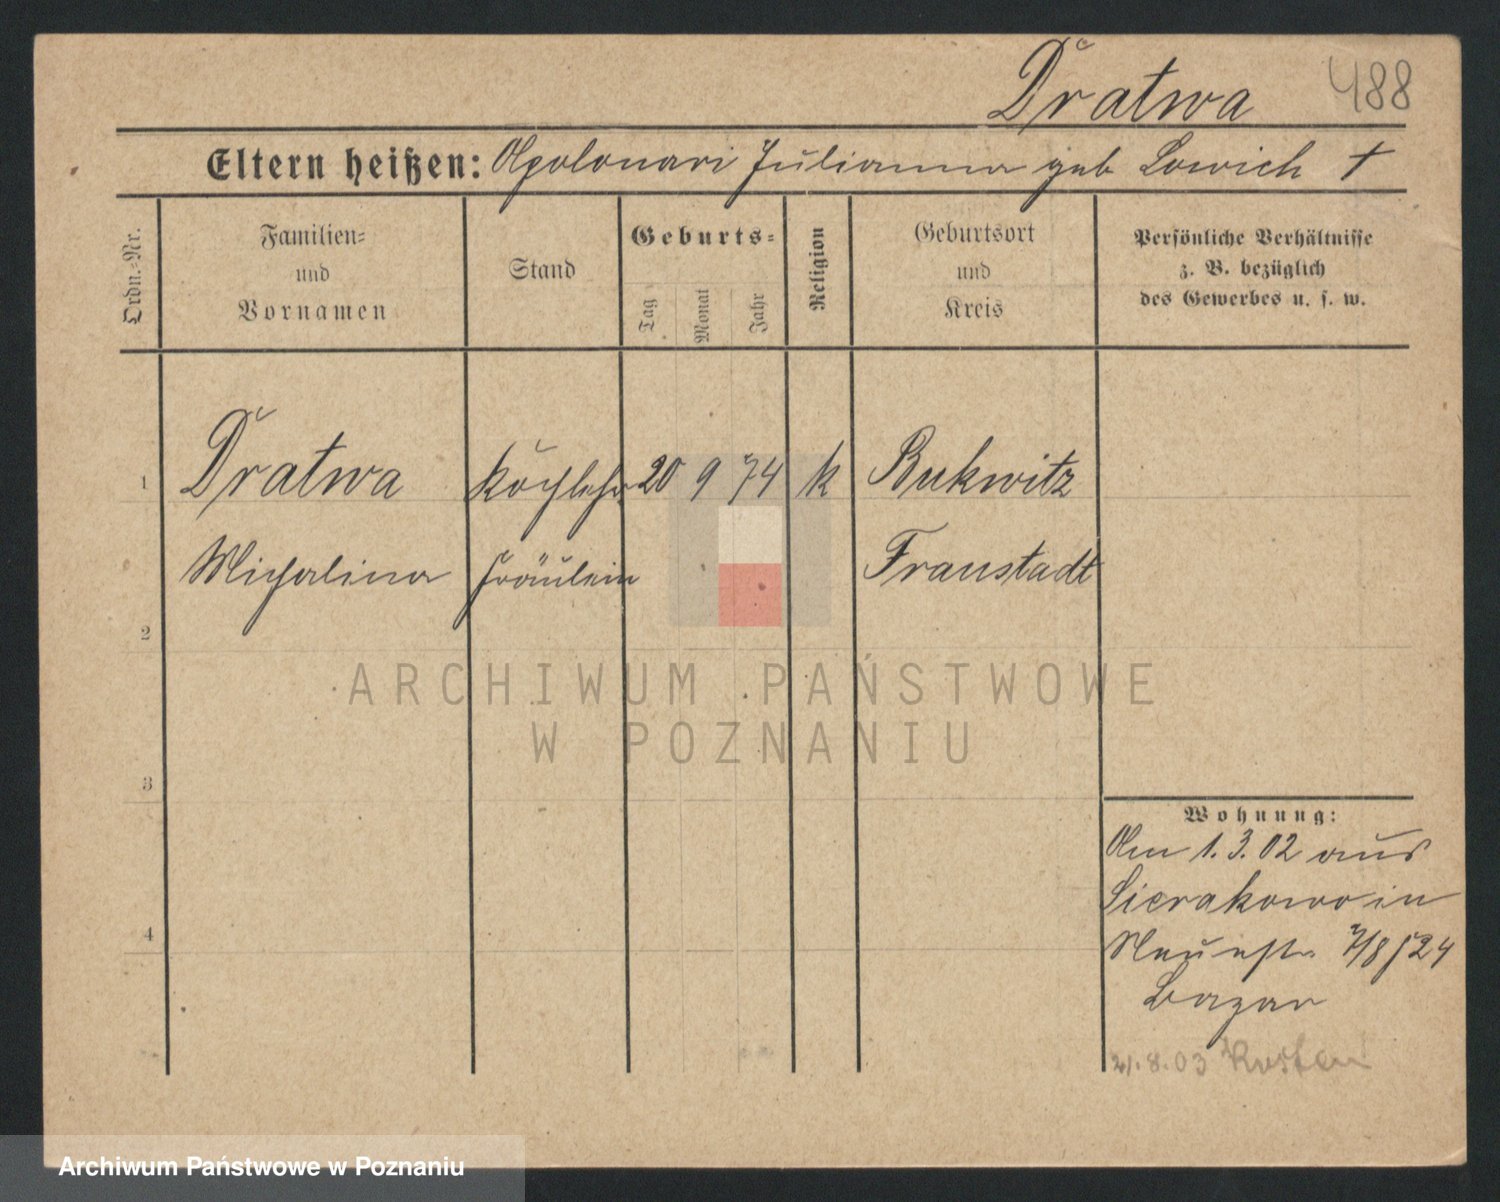 Dratwa 488
Eltern heißen: Apolonari Julianna geb Lowich †
Ordn.-Nr.
Familien-
und
Vornamen
Stand
Geburts-
Tag
Monat
Jahr
Religion
Geburtsort
und
Kreis
Persönliche Verhältnisse
z. B. bezüglich
des Gewerbes u. s. w.
1 Dratwa Kochlehr 20 9 74 k Bukwitz
Michalina fräulein Fraustadt
2
3
4
Wohnung:
Am 1.3.02 aus
Sierakowo in
Neuestr 7/8 24
Bazar
21.8.03 Kosten
ARCHIWUM PAŃSTWOWE
W POZNANIU
Archiwum Państwowe w Poznaniu